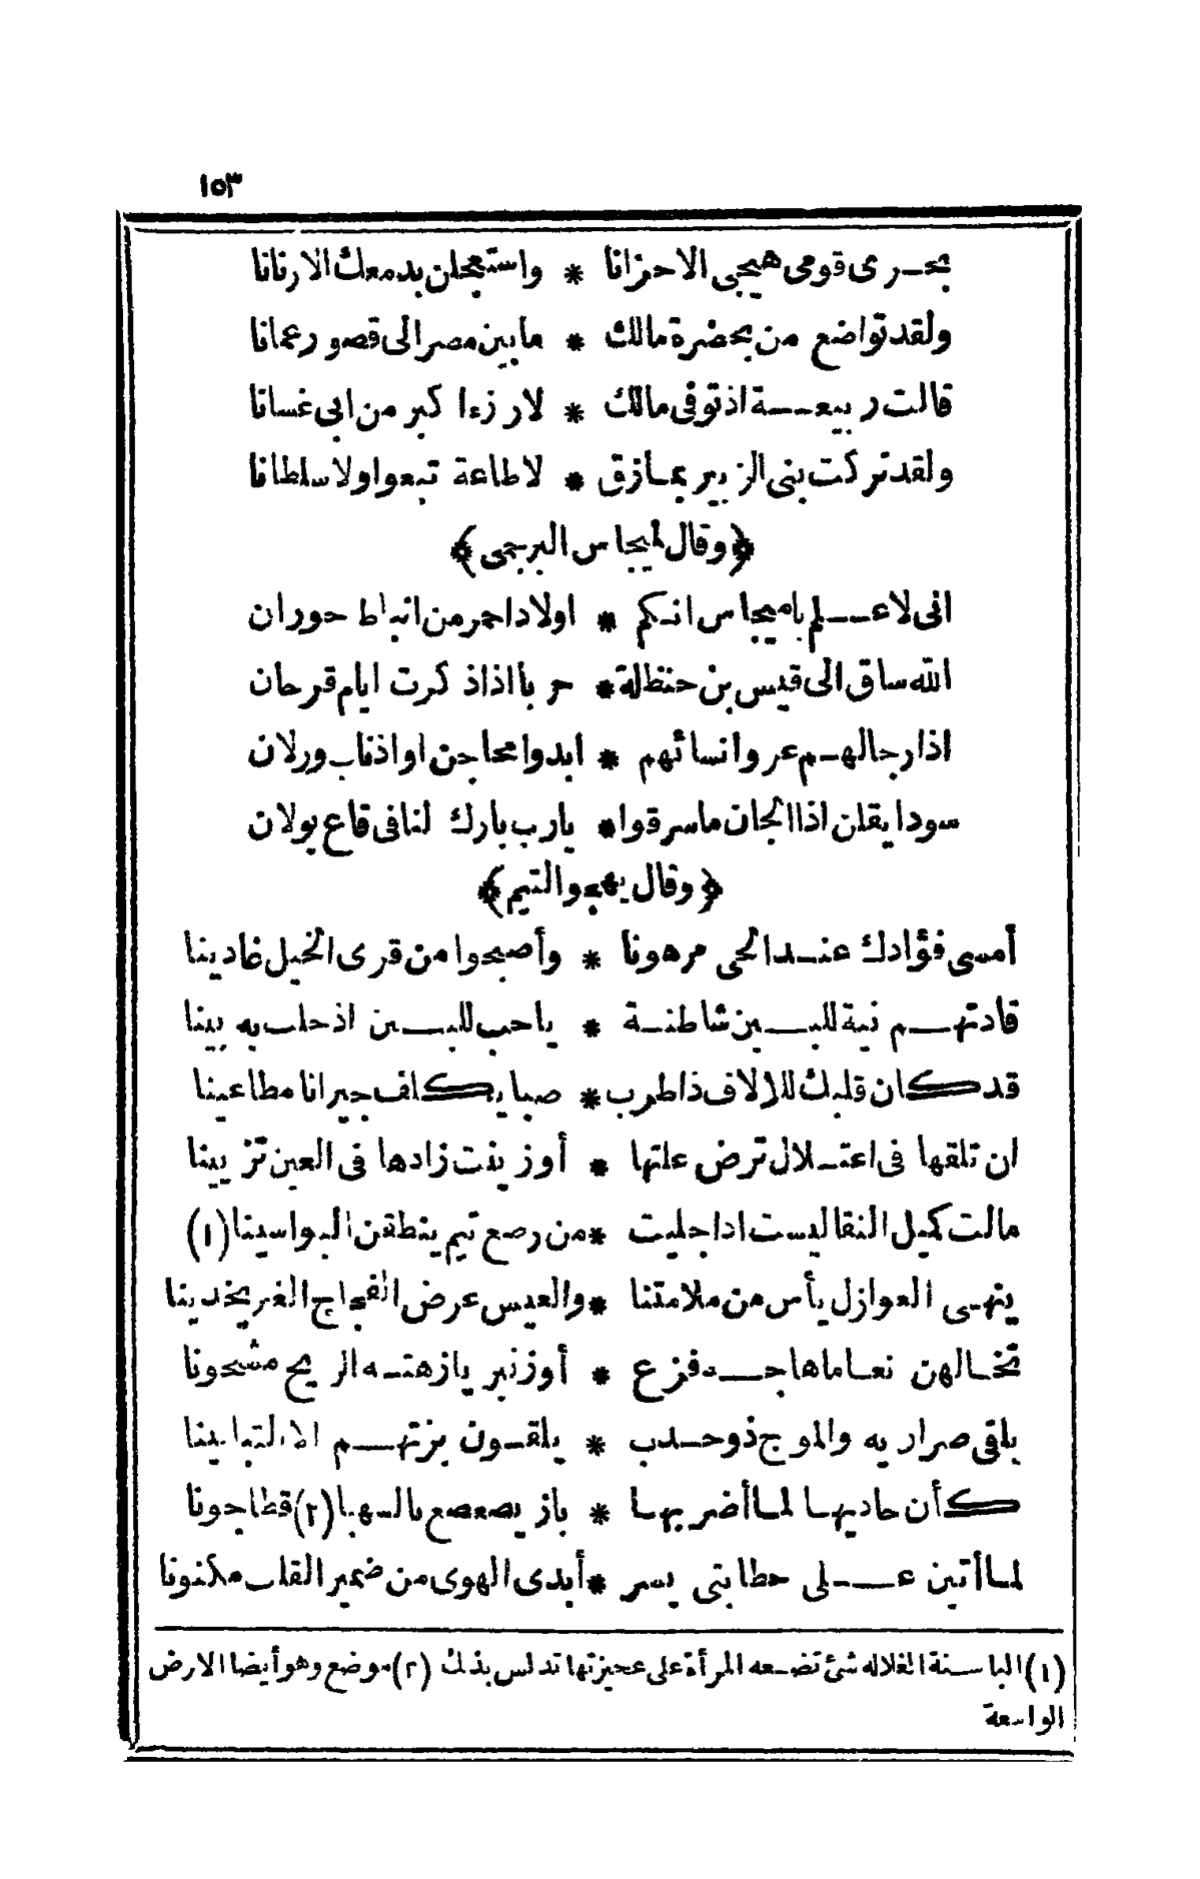 ١٥٣
بحرى قومى هيجى الاحزانا * واستعجلن بدمعك الارنانا
ولقد تواضع من بحضرة مالك * مابين مصر الى قصور عمانا
قالت ربيعة اذ توفى مالك * لارزءا كبر من ابى غسانا
ولقد تركت بنى الزبير بمازق * لاطاعة تبعوا ولا سلطانا
﴿وقال لميجاس البرجمى﴾
انى لاعلم يا ميجاس انكم * اولاد احمر من انباط حوران
الله ساق الى قيس بن حنظلة * حربا اذا ذكرت ايام قرحان
اذا رجالهم عروا نسائهم * ابدوا محاجن او اذناب ورلان
سودا يقلن اذا الجان ماسرقوا * يارب بارك لنا فى قاع بولان
﴿وقال يهجو التيم﴾
أمسى فؤادك عند الحى مرهونا * وأصبحوا من قرى الخيل غادينا
قادتهم نية للبين شاطنة * ياحب للبين اذ حلت به بينا
قد كان قلبك للالاف ذا طرب * صبا يكلف جيرانا مظاعينا
ان تلقها فى اعتلال ترض علتها * أو زينت زادها فى العين تزيينا
مالت كميل النقا ليست اذا جليت * من رصع تيم ينطقن البواسينا (١)
ينهى العواذل يأس من ملامتنا * والعيس عرض الفجاج الغبر يخدينا
تخالهن نعاما هاجه فزع * أو زنبريا زهته الريح مشحونا
باقى صراريه والموج ذو حدب * يلقون بزتهم الا التبابينا
كأن حاديها لما أضر بها * باز يصعصع بالسهبا (٢) قطا جونا
لما أتين على حطابتى يسر * أبدى الهوى من ضمير القلب مكنونا
(١) الباسنة الغلاله شئ تضعه المرأة على عجيزتها تدلس بذلك (٢) موضع وهو أيضا الارض
الواسعة